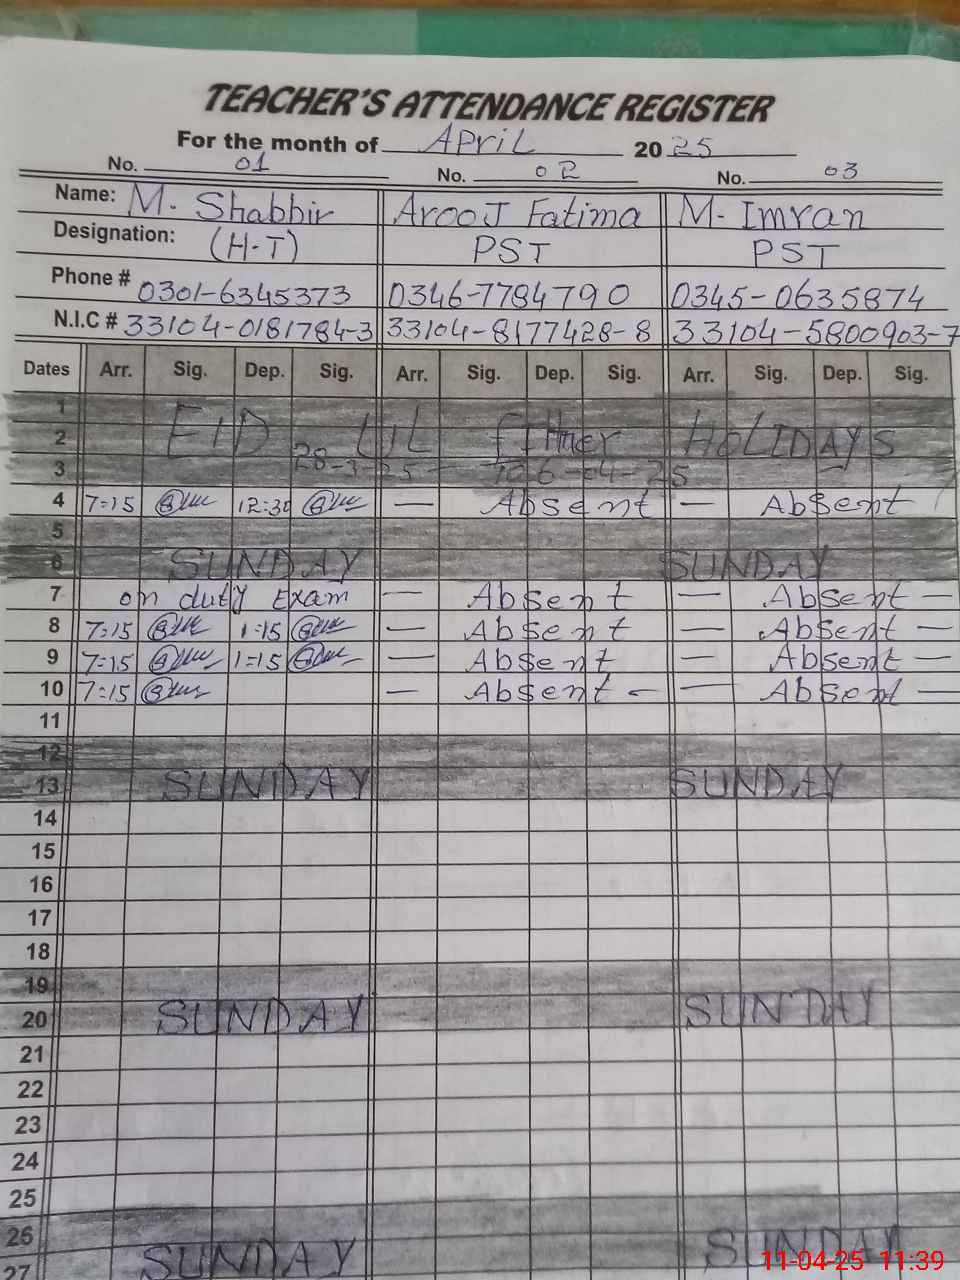 TEACHER'S ATTENDANCE REGISTER
For the month of April 2025
No. 01 No. 02 No. 03
Name: M. Shabbir Arooj Fatima M. Imran
Designation: (H-T) PST PST
Phone # 0301-6345373 0346-7784790 0345-0635874
N.I.C # 33104-0181784-3 33104-8177428-8 33104-5800903-7
Dates Arr. Sig. Dep. Sig. Arr. Sig. Dep. Sig. Arr. Sig. Dep. Sig.
1
2 EID UL Fither HOLIDAYS
3 28-3-25 To 6-04-25
4 7:15 12:30 — Absent — Absent
5
6 SUNDAY SUNDAY
7 on duty Exam — Absent — Absent —
8 7:15 1:15 — Absent — Absent —
9 7:15 1:15 — Absent — Absent —
10 7:15 — Absent — — Absent —
11
12
13 SUNDAY SUNDAY
14
15
16
17
18
19
20 SUNDAY SUNDAY
21
22
23
24
25
26
27 SUNDAY SUNDAY
11-04-25 11:39